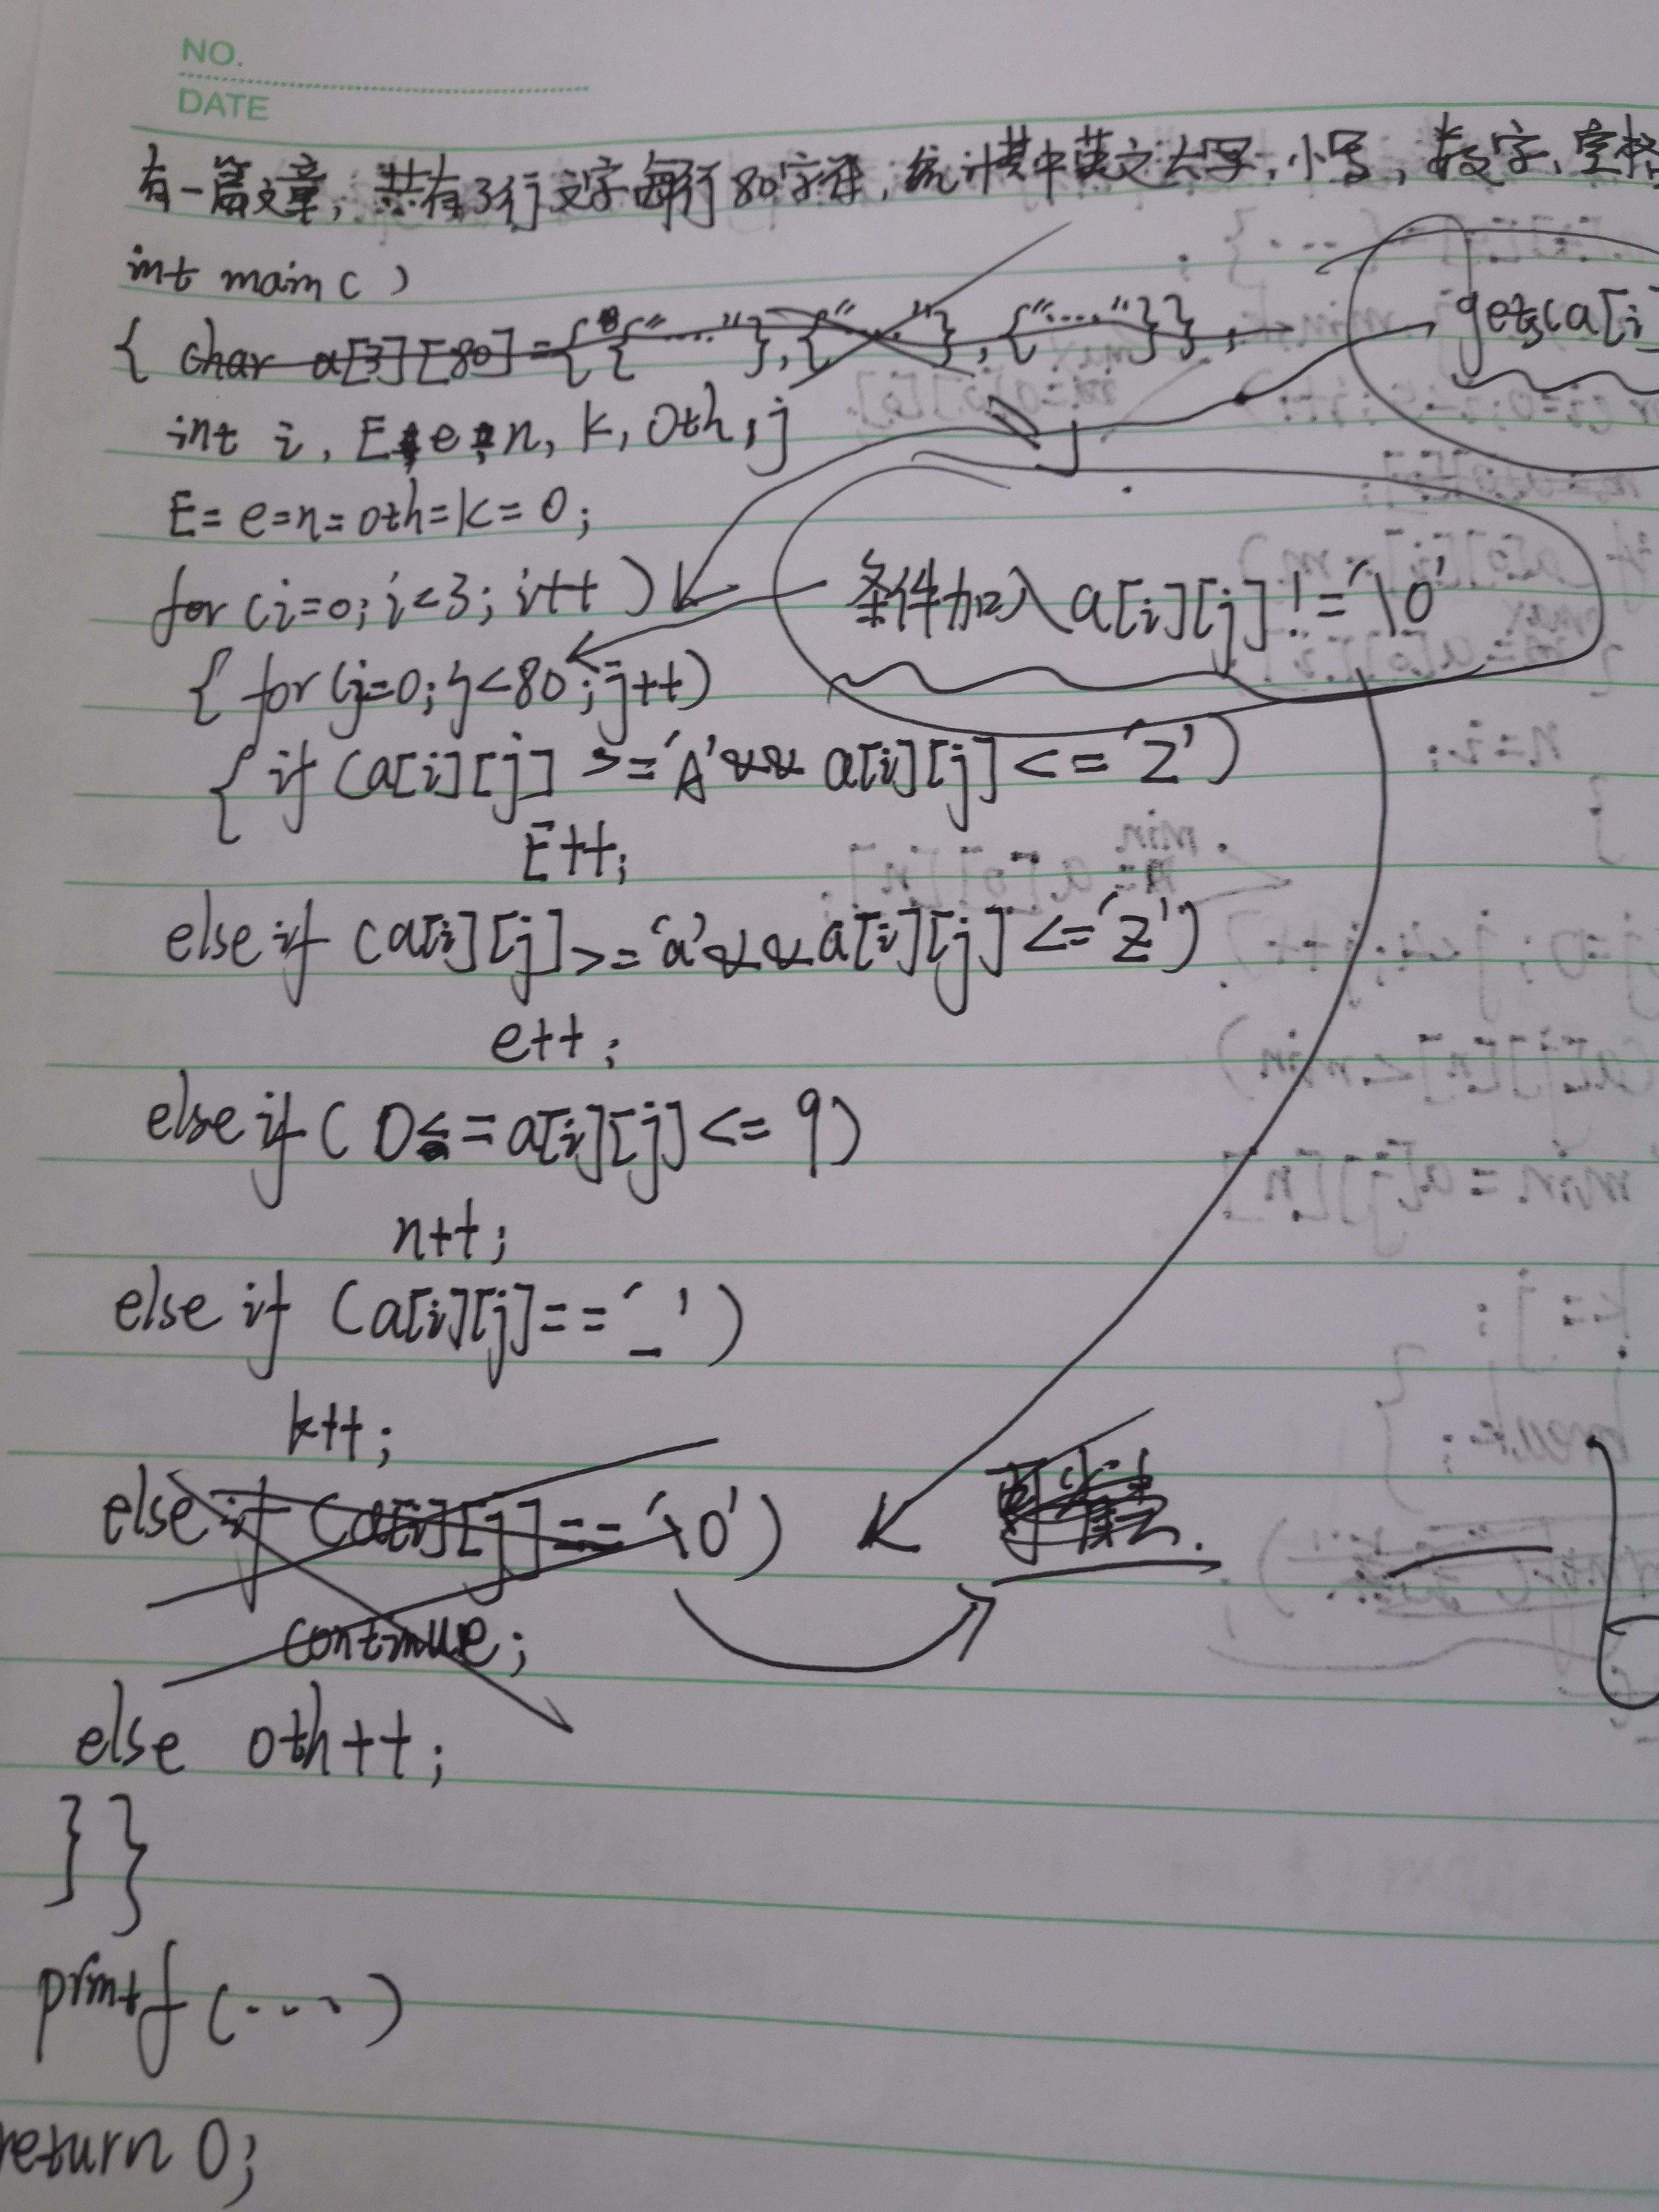 NO.
DATE
有一篇文章，共有3行文字每行80字符，统计其中英文大写，小写，数字，空格
int main()
{ char a[3][80]={{"....."},{"..."},{"....."}};
gets(a[i]
int i, E, e, n, k, oth, j
E=e=n=oth=k=0;
for(i=0;i<3;i++)
条件加入a[i][j]!='\0'
{ for(j=0;j<80;j++)
{ if (a[i][j]>='A'&&a[i][j]<='Z')
E++;
else if (a[i][j]>='a'&&a[i][j]<='z')
e++;
else if(0<=a[i][j]<=9)
n++;
else if (a[i][j]=='_')
k++;
else if (a[i][j]=='\0')
continue;
else oth++;
}}
printf(....)
return 0;